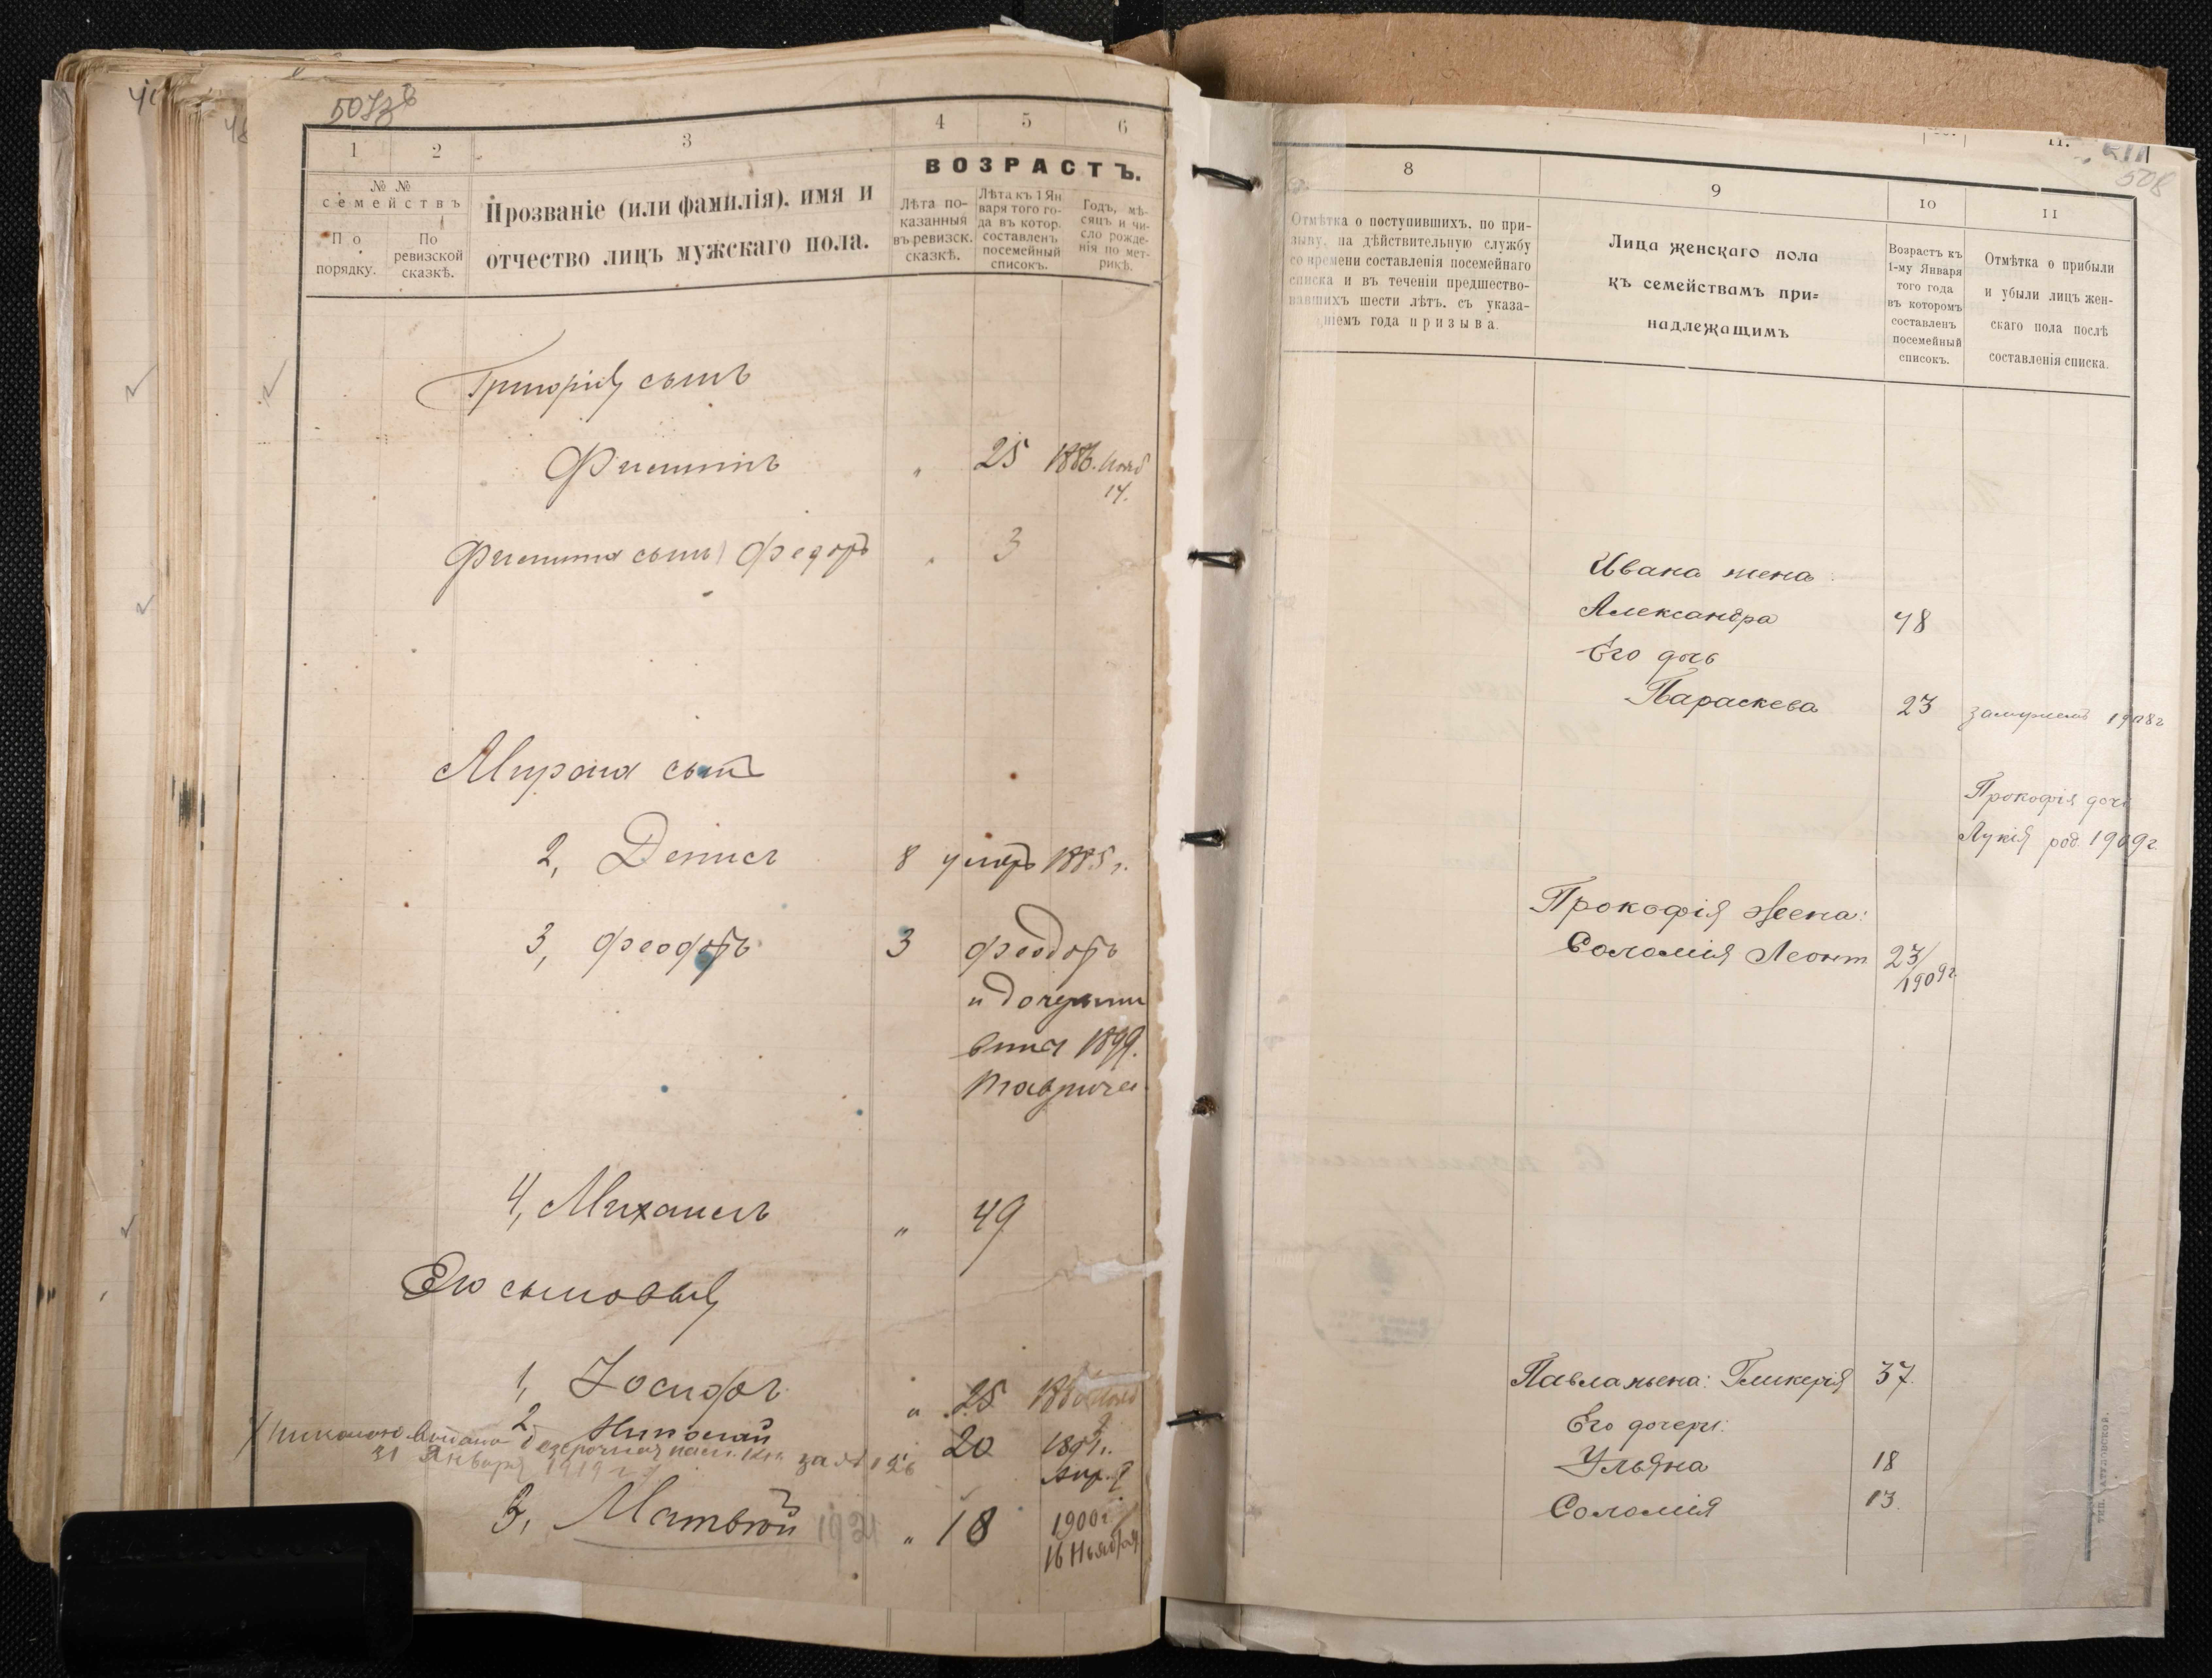 1
2
3
4
5
6
№ №
семействъ
Прозваніе (или фамилія), имя и
отчество лицъ мужскаго пола.
ВОЗРАСТЪ.
По
порядку.
По
ревизской
сказкѣ.
Лѣта по-
казанныя
въ ревизск.
сказкѣ.
Лѣта къ 1 Ян
варя того го-
да въ котор.
составленъ
посемейный
списокъ.
Годъ, мѣ-
сяцъ и чи-
сло рожде-
нія по мет-
рикѣ.
Григорія сынъ
Филиппъ " 25 1886. Нояб
14.
Филиппа сынъ Федоръ " 3
Мирона сынъ
2, Денисъ 8 умеръ 1885 г.
3, Феодоръ 3 Феодоръ
1899.
4, Михаилъ " 49
Его сыновья
1, Іосифъ " 25
2 Николай 20 189
Апр.
31 Января 1919 г.
3, Матвѣй " 18 1900 г
16 Ноября
508
8
9
10
11
Отмѣтка о поступившихъ, по при-
зыву, на дѣйствительную службу
со времени составленія посемейнаго
списка и въ теченіи предшество-
вавшихъ шести лѣтъ, съ указа-
ніемъ года призыва.
Лица женскаго пола
къ семействамъ при=
надлежащимъ
Возрастъ къ
1-му Января
того года
въ которомъ
составленъ
посемейный
списокъ.
Отмѣтка о прибыли
и убыли лицъ жен-
скаго пола послѣ
составленія списка.
Ивана жена
Александра 48
Его дочь
Параскева 23 замужемъ 1908 г
Прокофія дочь
Лукія род. 1909 г
Прокофія жена:
Соломія Леонт 23/
1909 г.
Павла жена: Гликерія 37.
Его дочери:
Ульяна 18
Соломія 13.